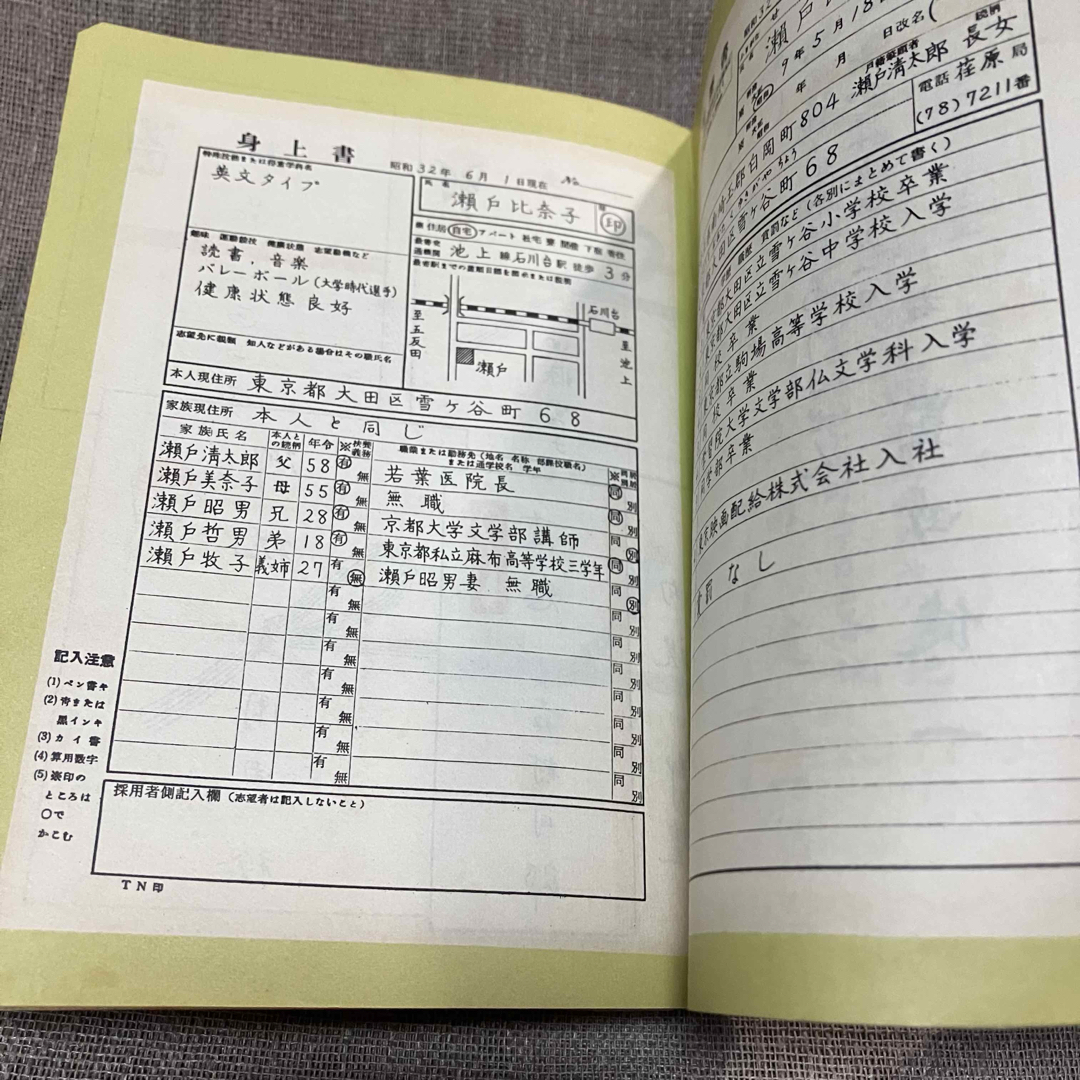 身上書
昭和32年 6月 1日現在 No.
特殊技能または得意学科名
英文タイプ
氏名
瀬戸比奈子
印
趣味 運動競技 健康状態 志望動機など
読書、音楽
バレーボール(大学時代選手)
健康状態良好
住居 自宅 アパート 社宅 寮 間借 下宿
池上線石川台駅 徒歩 3分
石川台
至五反田
至池上
瀬戸
志望先に親類 知人などがある場合はその職氏名
本人現住所 東京都大田区雪ヶ谷町68
家族現住所 本人と同じ
家族氏名 本人との続柄 年令 ※扶養義務 職業または勤務先(地名 名称 部課役職名)または通学校名 学年
瀬戸清太郎 父 58 有 無 若葉医院長 同 別
瀬戸美奈子 母 55 有 無 無職 同 別
瀬戸昭男 兄 28 有 無 京都大学文学部講師 同 別
瀬戸哲男 弟 18 有 無 東京都私立麻布高等学校三学年 同 別
瀬戸牧子 義姉 27 有 無 瀬戸昭男妻 無職 同 別
有 無 同 別
有 無 同 別
有 無 同 別
有 無 同 別
有 無 同 別
有 無 同 別
有 無 同 別
記入注意
(1)ペン書キ
(2)青または
黒インキ
(3)カイ書
(4)算用数字
(5)※印の
ところは
○で
かこむ
採用者側記入欄(志望者は記入しないこと)
TN印
昭和32
瀬戸
9年5月18
年 月 日改名(
804 瀬戸清太郎 続柄 長女
白岡町
電話 荏原局
(78)7211番
ゆきがやちょう
雪ヶ谷町68
(各別にまとめて書く)
大田区立雪ヶ谷小学校卒業
大田区立雪ヶ谷中学校入学
校卒業
東京都立駒場高等学校入学
校卒業
院大学文学部仏文学科入学
学部卒業
映画配給株式会社入社
賞罰 なし